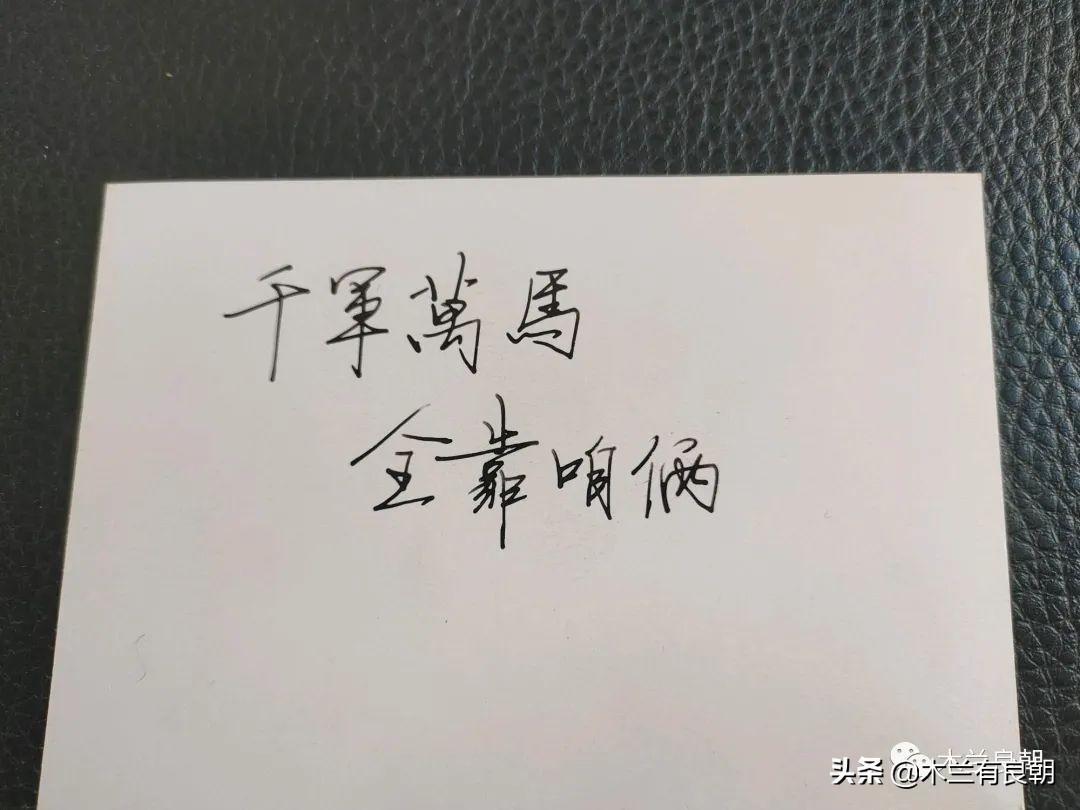 千軍萬馬
全靠咱倆
木兰良朝
头条 @木兰有良朝